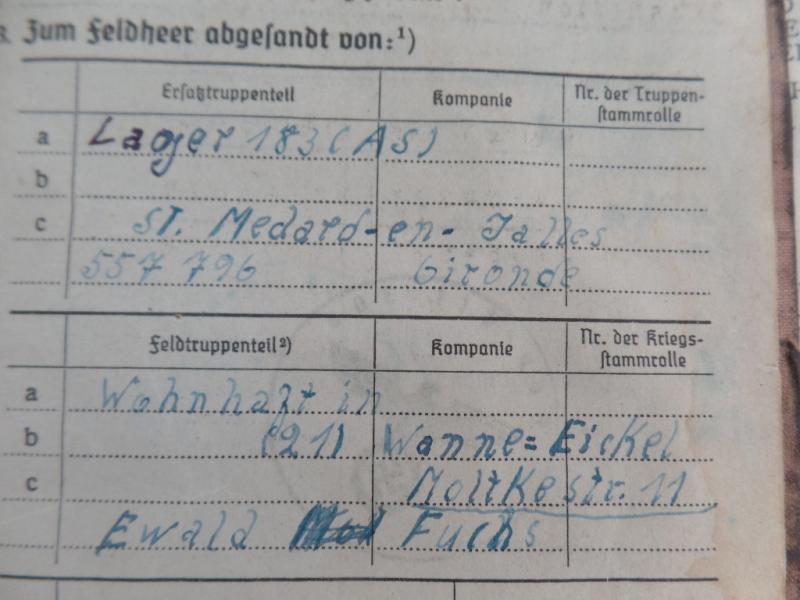 3. Zum Feldheer abgesandt von:¹)
Ersatztruppenteil Kompanie Nr. der Truppen-
stammrolle
a Lager 183 (AS)
b
c St. Medard-en-Jalles
557 796 Gironde
Feldtruppenteil²) Kompanie Nr. der Kriegs-
stammrolle
a Wohnhaft in
b (21) Wanne=Eickel
c Moltkestr. 11
Ewald Fuchs